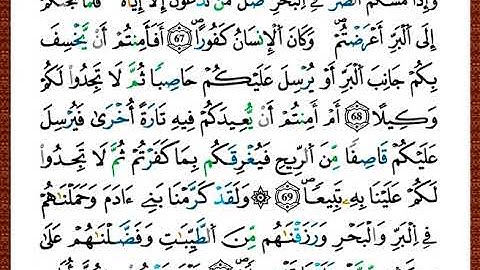 وَإِذَا مَسَّكُمُ الضُّرُّ فِي الْبَحْرِ ضَلَّ مَن تَدْعُونَ إِلَّا إِيَّاهُ فَلَمَّا نَجَّىٰكُمْ
إِلَى الْبَرِّ أَعْرَضْتُمْ وَكَانَ الْإِنسَٰنُ كَفُورًا ۝67 أَفَأَمِنتُمْ أَنْ يَّخْسِفَ
بِكُمْ جَانِبَ الْبَرِّ أَوْ يُرْسِلَ عَلَيْكُمْ حَاصِبًا ثُمَّ لَا تَجِدُواْ لَكُمْ
وَكِيلًا ۝68 أَمْ أَمِنتُمْ أَنْ يُّعِيدَكُمْ فِيهِ تَارَةً أُخْرَىٰ فَيُرْسِلَ
عَلَيْكُمْ قَاصِفًا مِّنَ الرِّيحِ فَيُغْرِقَكُم بِمَا كَفَرْتُمْ ثُمَّ لَا تَجِدُواْ
لَكُمْ عَلَيْنَا بِهِۦ تَبِيعًا ۝69 ۞ وَلَقَدْ كَرَّمْنَا بَنِي ءَادَمَ وَحَمَلْنَٰهُمْ
فِي الْبَرِّ وَالْبَحْرِ وَرَزَقْنَٰهُم مِّنَ الطَّيِّبَٰتِ وَفَضَّلْنَٰهُمْ عَلَىٰ